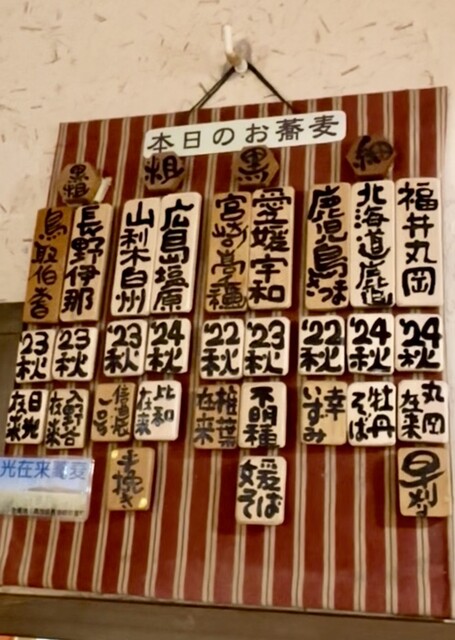 本日のお蕎麦
細
福井丸岡
'24秋
丸岡在来
早刈り
北海道鹿追
'24秋
牡丹そば
鹿児島さつま
'22秋
幸いずみ
黒
愛媛宇和
'23秋
不明種
媛そば
宮崎高千穂
'22秋
椎葉在来
粗
広島塩原
'24秋
比和在来
山梨白州
'23秋
信濃一号
手挽き
黒粗
長野伊那
'23秋
入野谷在来
鳥取伯耆
'23秋
日光在来
光在来蕎麦